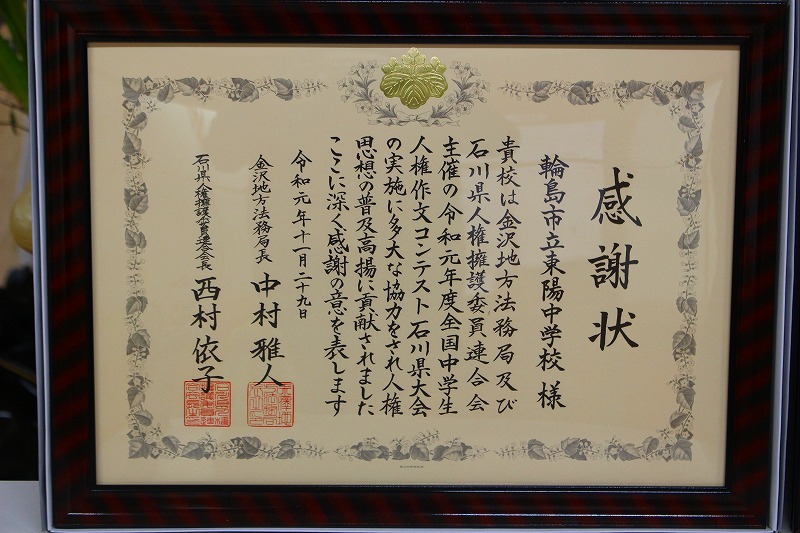 感謝状
輪島市立東陽中学校 様
貴校は金沢地方法務局及び
石川県人権擁護委員連合会
主催の令和元年度全国中学生
人権作文コンテスト石川県大会
の実施に多大な協力をされ人権
思想の普及高揚に貢献されました
ここに深く感謝の意を表します
令和元年十一月二十九日
金沢地方法務局長 中村雅人
石川県人権擁護委員連合会会長 西村依子